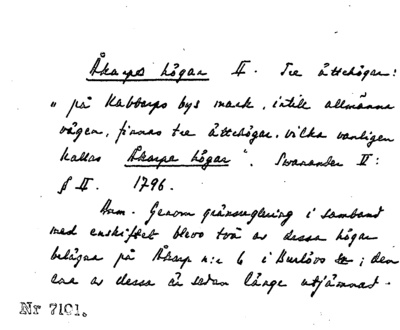 Åkarps högar II. Tre ättehögar:
"på Kabbarps bys mark, intill allmänna
vägen, finnas tre ättehögar, vilka vanligen
kallas Åkarps högar". Swanander II:
§ II. 1796.
Anm. Genom gränsreglering i samband
med enskiftet blevo två av dessa högar
belägna på Åkarp n:r 6 i Burlövs sn; den
ena av dessa är sedan länge utjämnad.
Nr 7101.